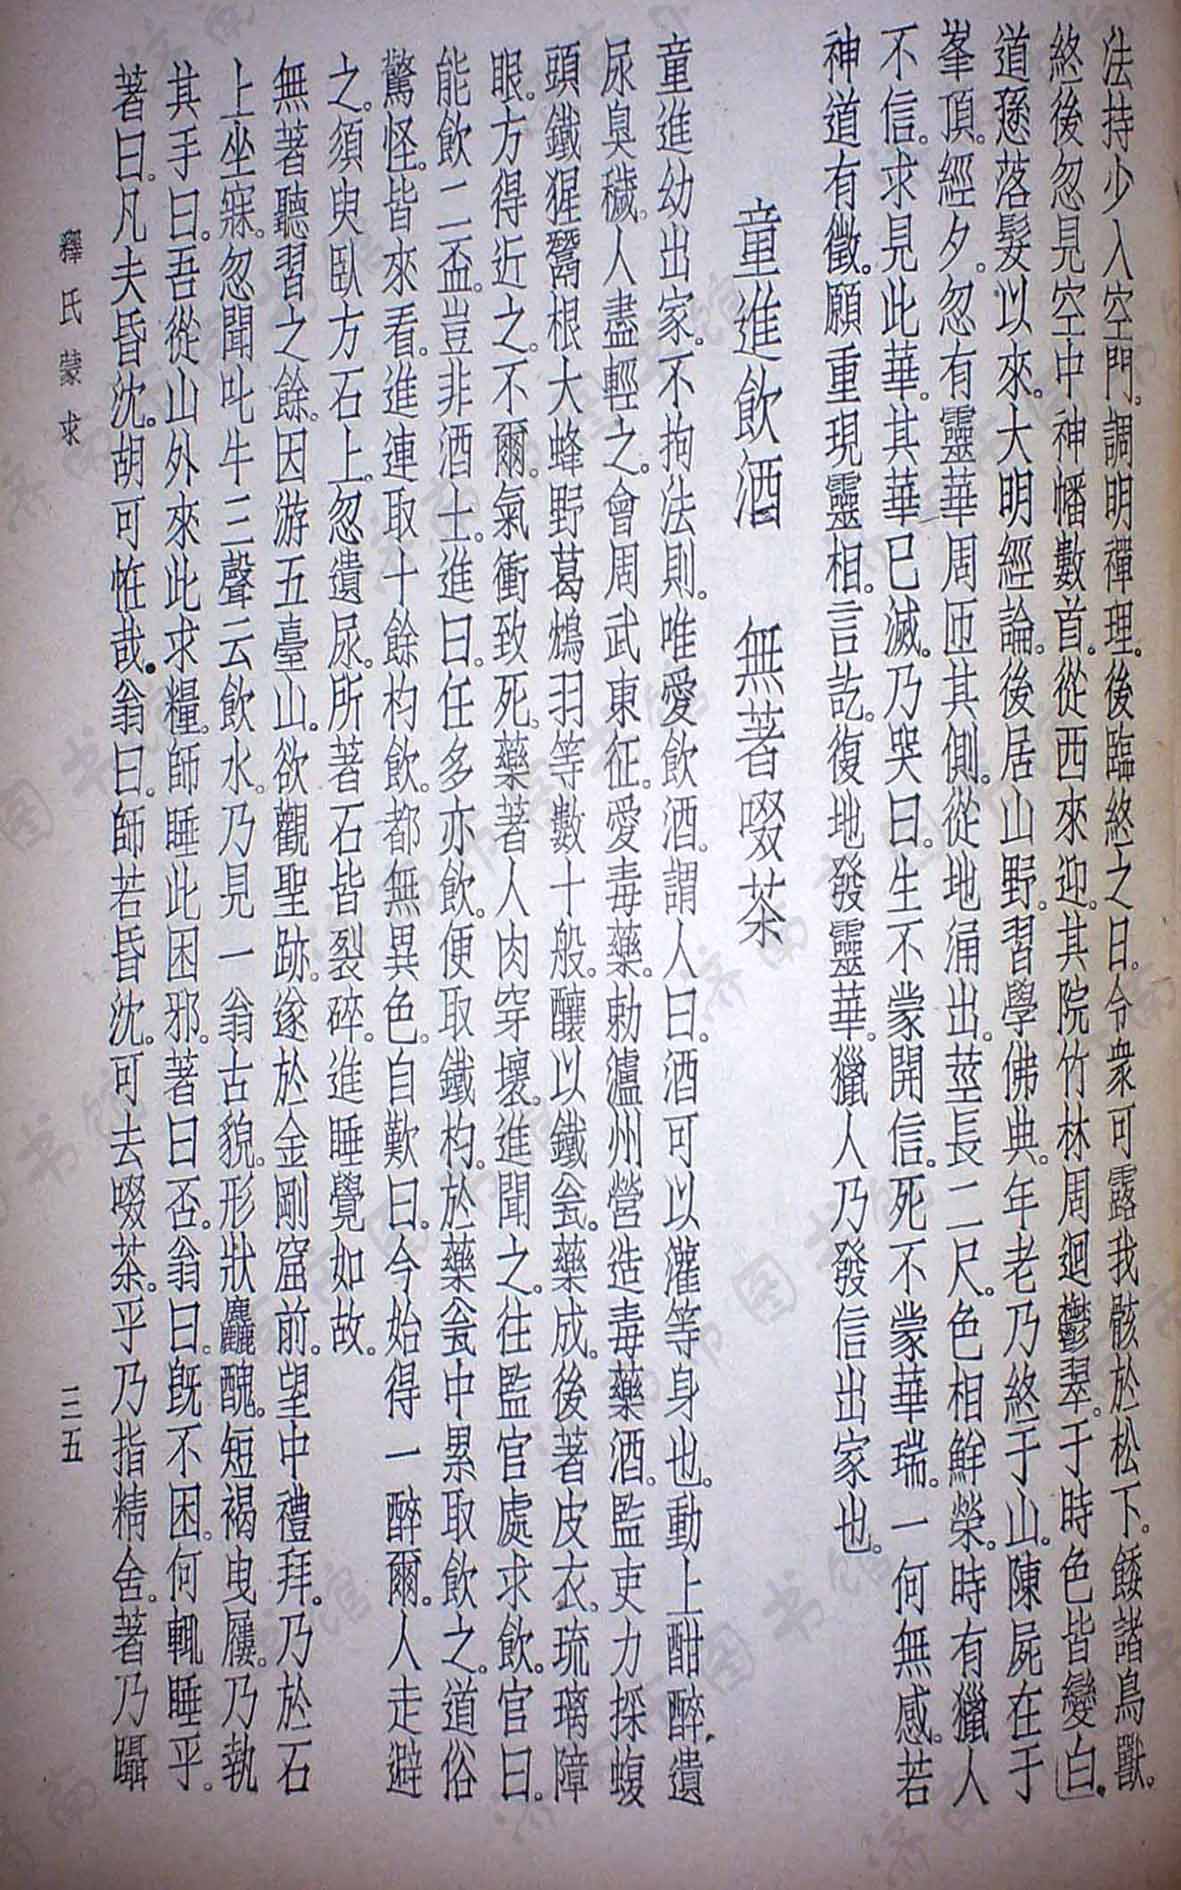 法持少入空門。調明禪理。後臨終之日。令衆可露我骸於松下。餧諸鳥獸。
終後忽見空中神幡數首。從西來迎。其院竹林周迴鬱翠。于時色皆變白。
道愻落髮以來。大明經論。後居山野。習學佛典。年老乃終于山。陳屍在于
峯頂。經夕。忽有靈華周匝其側。從地涌出。莖長二尺。色相鮮榮。時有獵人
不信。求見此華。其華已滅。乃哭曰。生不蒙開信。死不蒙華瑞。一何無感。若
神道有徵。願重現靈相。言訖。復地發靈華。獵人乃發信出家也。
童進飲酒 無著啜茶
童進幼出家。不拘法則。唯愛飲酒。謂人曰。酒可以灌等身也。動上酣醉。遺
尿臭穢。人盡輕之。會周武東征。愛毒藥。勅瀘州營造毒藥酒。監吏力採蝮
頭鐵猩鷩根大蜂野葛鴆羽等數十般。釀以鐵瓮。藥成。後著皮衣。琉璃障
眼。方得近之。不爾。氣衝致死。藥著人肉穿壞。進聞之。往監官處求飲。官曰。
能飲二盃。豈非酒士。進曰。任多亦飲。便取鐵杓。於藥瓮中累取飲之。道俗
驚怪。皆來看。進連取十餘杓飲。都無異色。自歎曰。今始得一醉爾。人走避
之。須臾臥方石上。忽遺尿。所著石皆裂碎。進睡覺如故。
無著聽習之餘。因游五臺山。欲觀聖跡。遂於金剛窟前。望中禮拜。乃於石
上坐寐。忽聞叱牛三聲云飲水。乃見一翁古貌。形狀麤醜。短褐曳屨。乃執
其手曰。吾從山外來此求糧。師睡此困邪。著曰否。翁曰。既不困。何輒睡乎。
著曰。凡夫昏沈。胡可恠哉。翁曰。師若昏沈。可去啜茶。乎乃指精舍。著乃躡
釋氏蒙求
三五